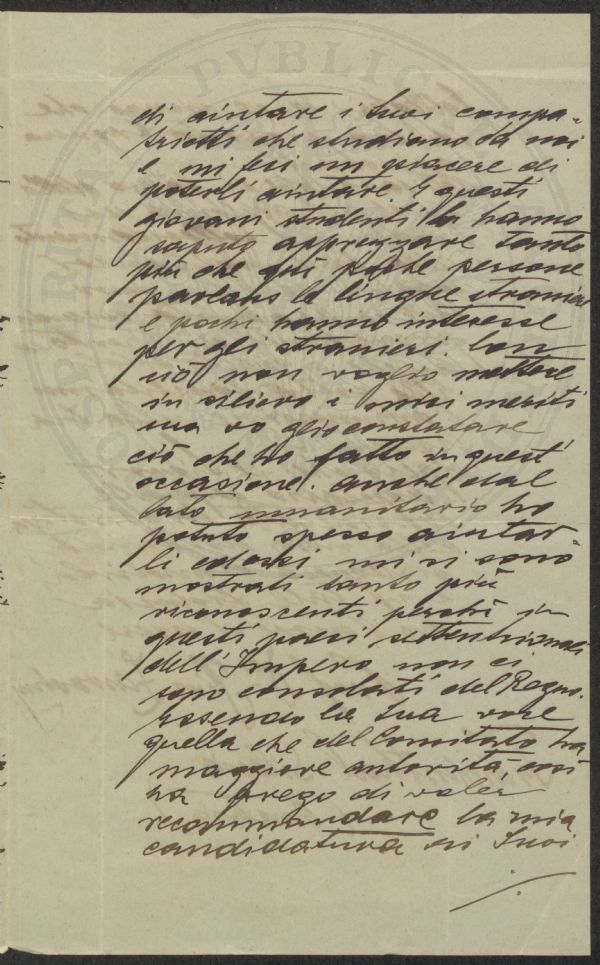 di aiutare i Suoi compa=
triotti che studiano da noi
e mi feci un piacere di
poterli aiutare. E questi
giovani studenti lo hanno
saputo apprezzare tanto
più che qui poche persone
parlano le lingue straniere
e pochi hanno interesse
per gli stranieri. Con
ciò non voglio mettere
in rilievo i miei meriti
ma voglio constatare
ciò che ho fatto in quest'
occasione. Anche dal
lato umanitario ho
potuto spesso aiutar=
li ed essi mi si sono
mostrati tanto più
riconoscenti perchè in
questi paesi settentrionali
dell'Impero non ci
sono consolati del Regno.
Essendo la Sua voce
quella che del Comitato ha
maggiore autorità, così
La prego di voler
recommandare la mia
candidatura ai Suoi
./.
PVBLIC